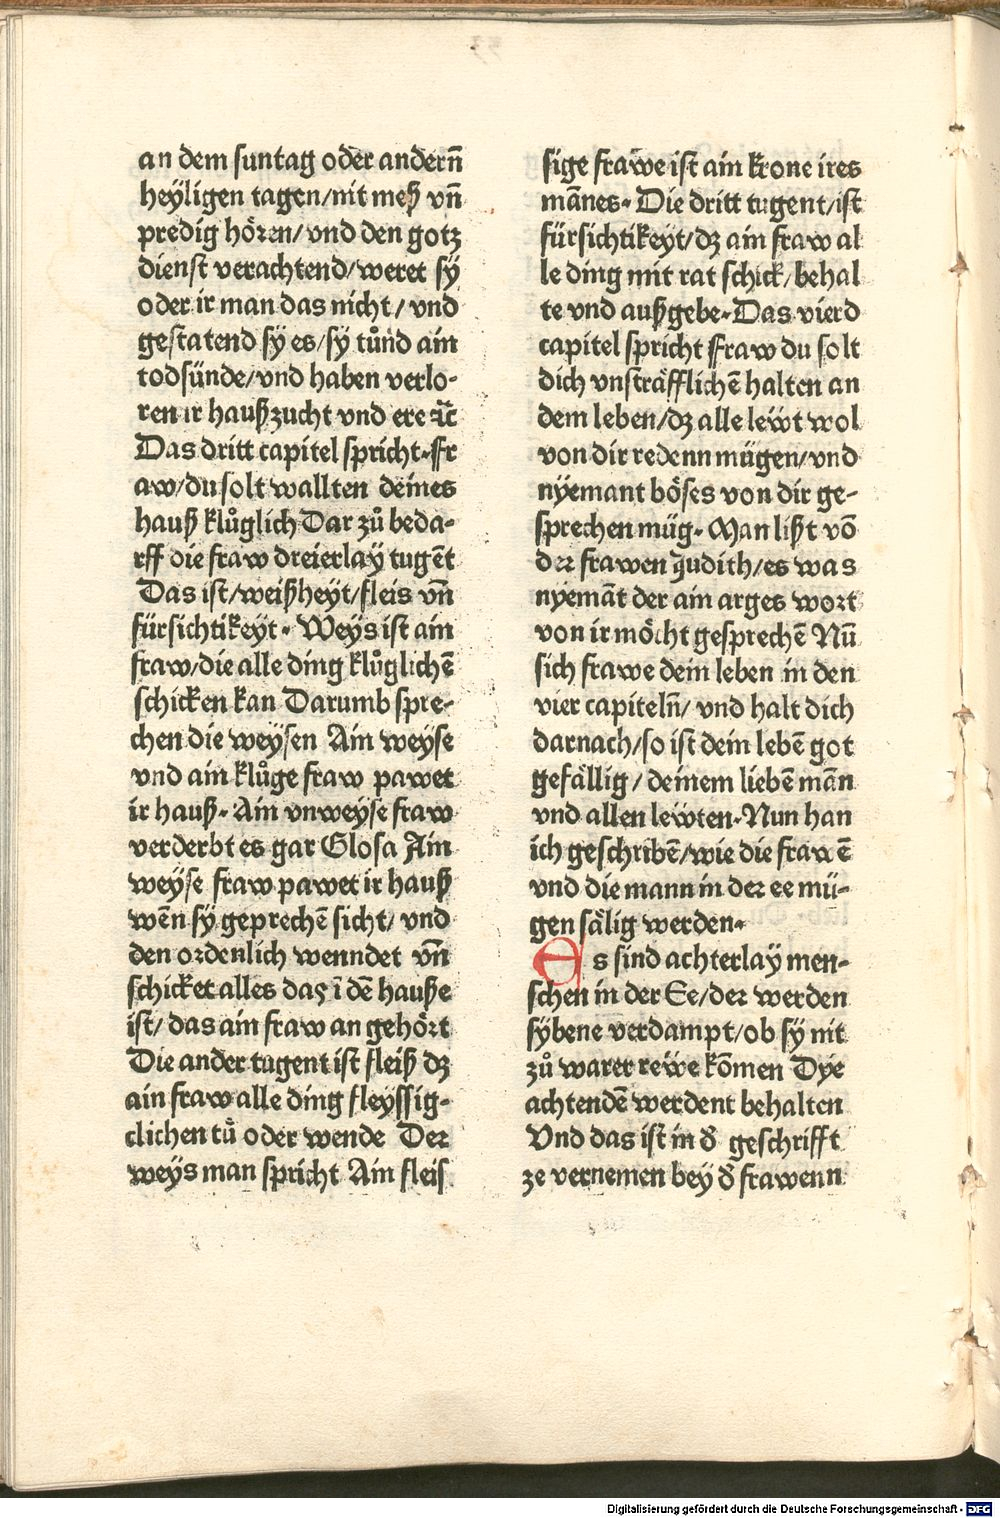 an dem suntag oder andern̄
heyligen tagen/nit meß vn̄
predig hören/vnd den gotz
dienst verachtend/weret sy
oder ir man das nicht/vnd
gestatend sy es/sy tůnd ain
todsünde/vnd haben verlo-
ren ir haußzucht vnd ere ꝛc̄
Das dritt capitel spricht·Fr
aw/du solt wallten deines
hauß klůglich Dar zů beda-
rff die fraw dreierlaÿ tugēt
Das ist/weißheyt/fleis vn̄
fürsichtikeyt· Weys ist ain
fraw/die alle ding klůglichē
schicken kan Darumb spre-
chen die weysen Ain weyse
vnd ain klůge fraw pawet
ir hauß·Ain vnweyse fraw
verderbt es gar Glosa Ain
weyse fraw pawet ir hauß
wēn sy geprechē sicht/vnd
den ordenlich wenndet vn̄
schicket alles das ī dē hauße
ist/das ain fraw an gehört
Die ander tugent ist fleiß dꝫ
ain fraw alle ding fleyssig-
clichen tů oder wende Der
weys man spricht Ain fleis
sige frawe ist ain krone ires
mānes· Die dritt tugent/ist
fürsichtikeyt/dꝫ ain fraw al
le ding mit rat schick/behal
te vnd außgebe·Das vierd
capitel spricht Fraw du solt
dich vnsträfflichē halten an
dem leben/dꝫ alle lewt wol
von dir redenn mügen/vnd
nyemant böses von dir ge-
sprechen müg·Man lißt vō
der frawen Judith/es was
nyemāt der ain arges wort
von ir möcht gesprechē Nū
sich frawe dein leben in den
vier capiteln̄/vnd halt dich
darnach/so ist dein lebē got
gefällig/deinem liebē mān
vnd allen lewten·Nun han
ich geschribē/wie die frawē
vnd die mann in der ee mü-
gen sälig werden·
Es sind achterlaÿ men-
schen in der Ee/der werden
sybene verdampt/ob sy nit
zů warer rewe kōmen Dye
achtendē werdent behalten
Vnd das ist in ð geschrifft
ze vernemen bey ð frawenn
Digitalisierung gefördert durch die Deutsche Forschungsgemeinschaft - DFG